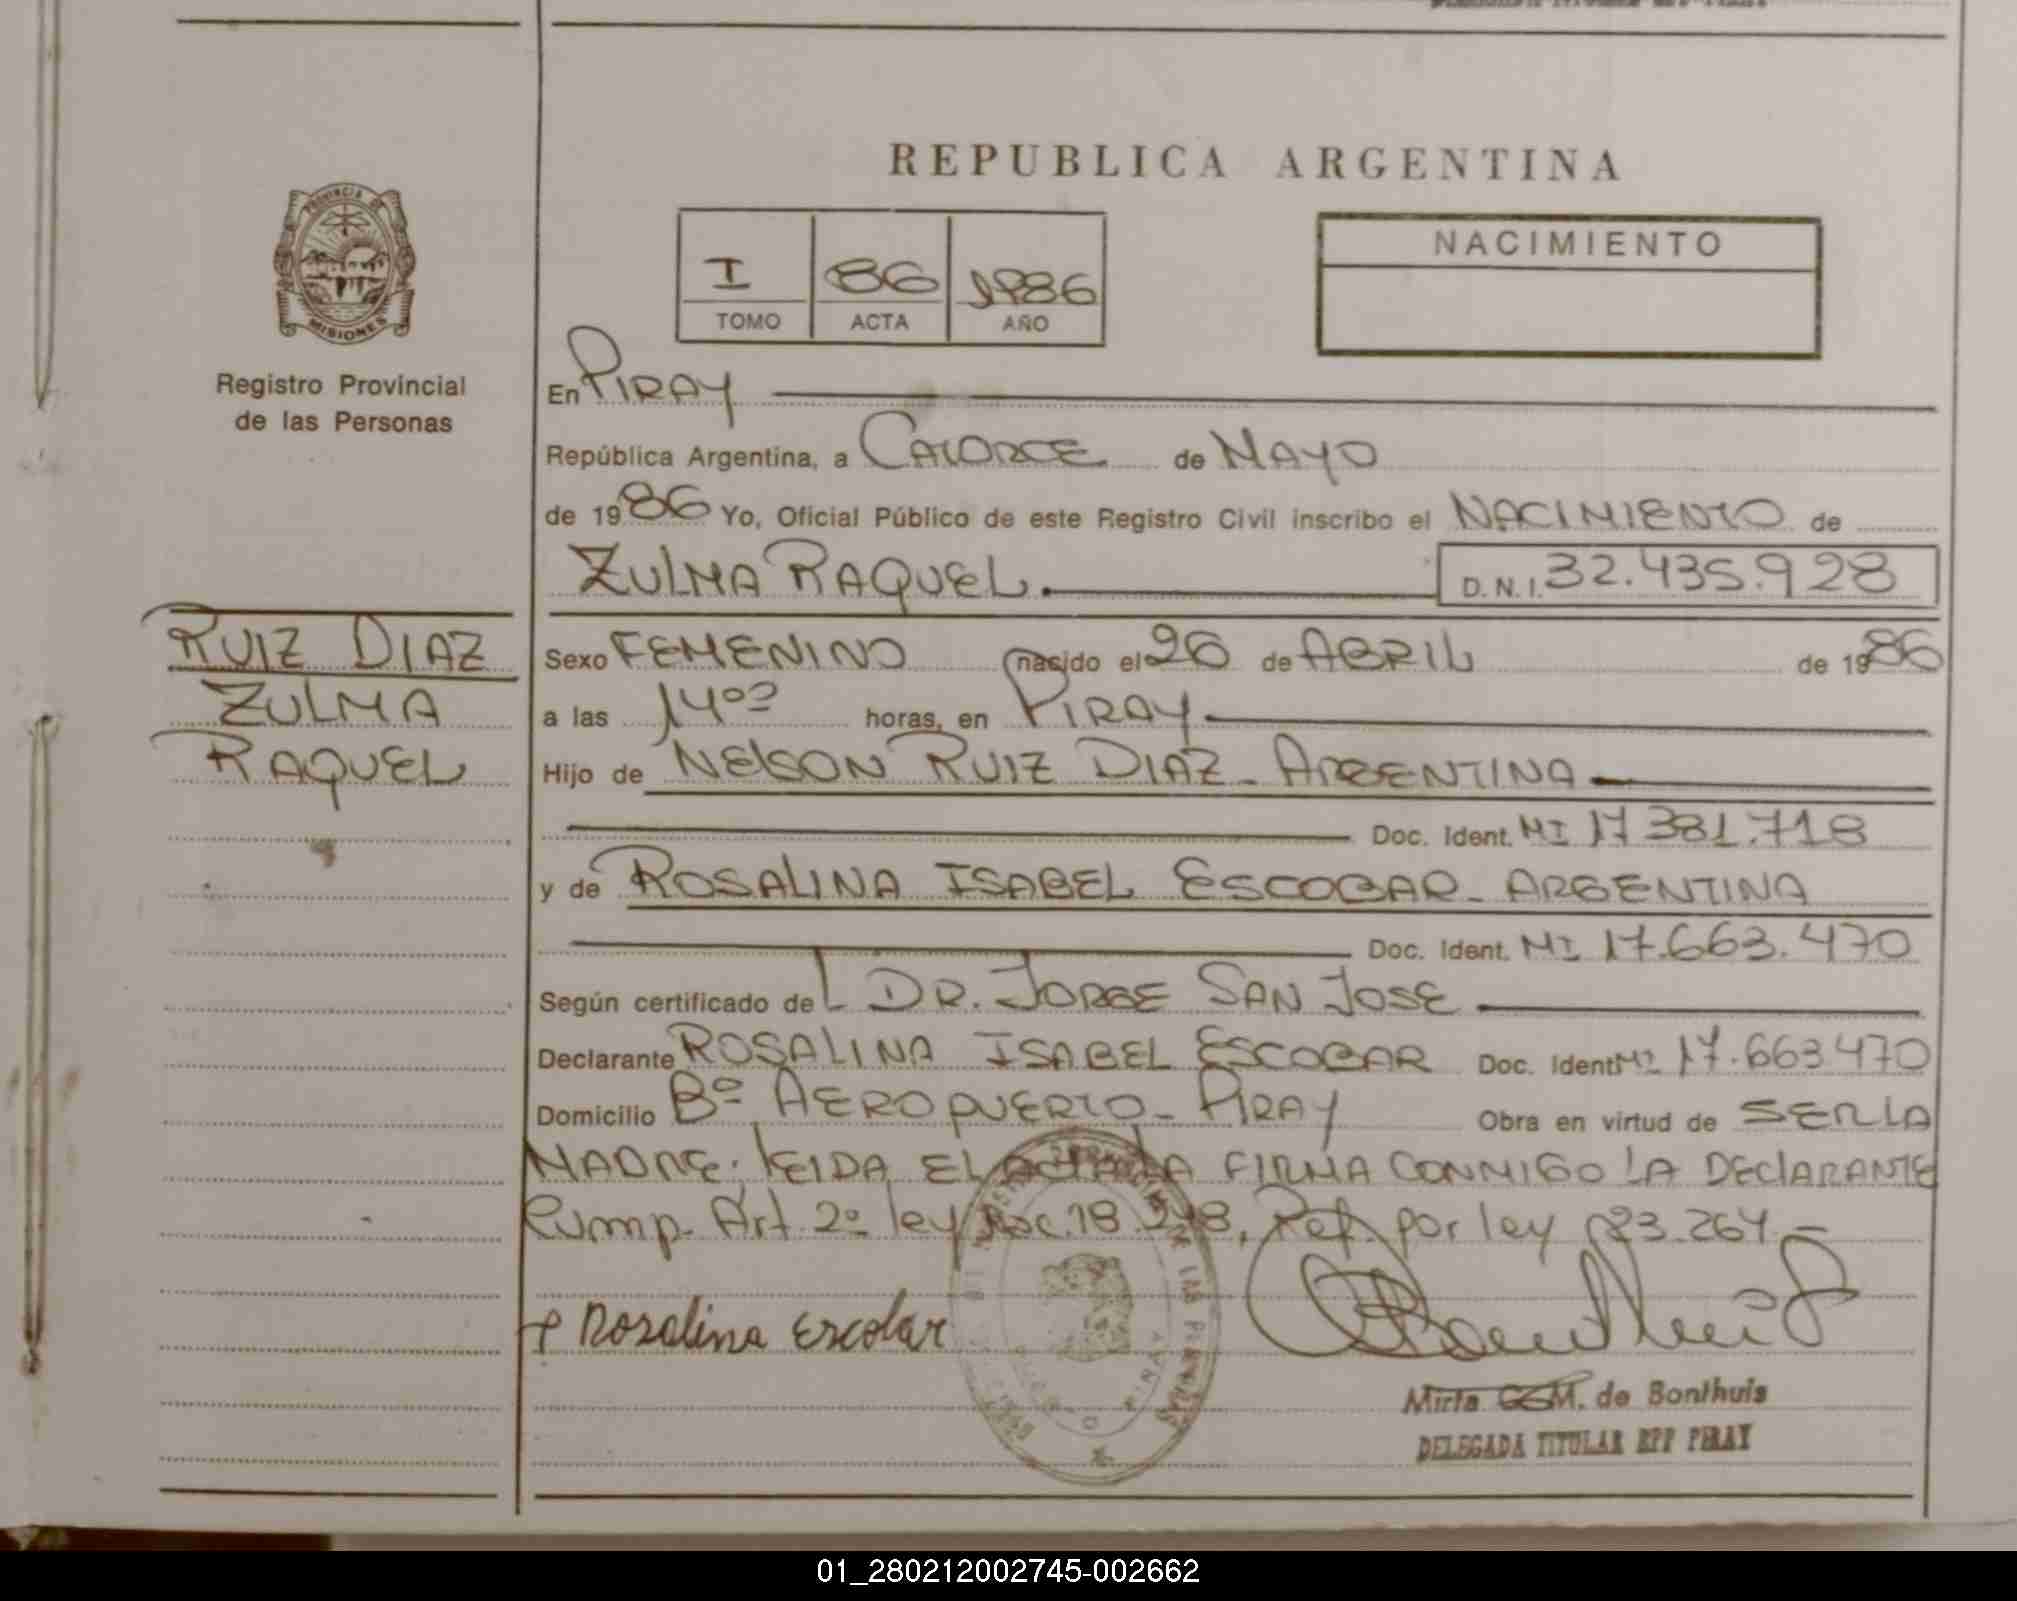 REPUBLICA ARGENTINA
PROVINCIA DE
MISIONES
Registro Provincial
de las Personas
I 86 1986
TOMO ACTA AÑO
NACIMIENTO
En PIRAY
República Argentina, a CATORCE de MAYO
de 1986 Yo, Oficial Público de este Registro Civil inscribo el NACIMIENTO de
ZULMA RAQUEL. D.N.I. 32.435.928
RUIZ DIAZ
ZULMA
RAQUEL
Sexo FEMENINO nacido el 26 de ABRIL de 1986
a las 14º horas, en PIRAY
Hijo de NELSON RUIZ DIAZ - ARGENTINA
Doc. Ident. MI 17381.718
y de ROSALINA ISABEL ESCOBAR - ARGENTINA
Doc. Ident. MI 17.663.470
Según certificado de DR. JORGE SAN JOSE
Declarante ROSALINA ISABEL ESCOBAR Doc. Ident MI 17.663470
Domicilio Bº AEROPUERTO - PIRAY Obra en virtud de SER LA
MADRE. LEIDA EL ACTA LA FIRMA CONMIGO LA DECLARANTE
Art. 2º ley Nac. 18.248, Ref. por ley 23.264.-
Rosalina Escobar
Mirta de Bonthuis
DELEGADA TITULAR RPP PIRAY
01_280212002745-002662